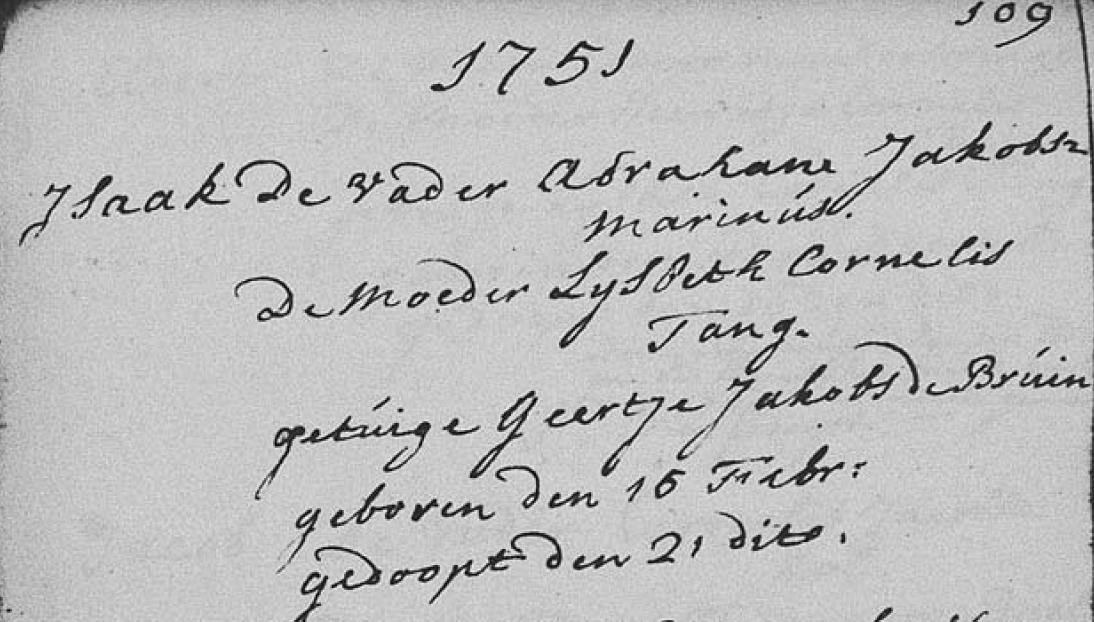 109
1751
Isaak De Vader Abraham Jakobsz
Marinús.
De Moeder Lysbeth Cornelis
Tang.
getúige Geertje Jakobs de Brúin
geboren den 16 Febr:
gedoopt den 21 dito.